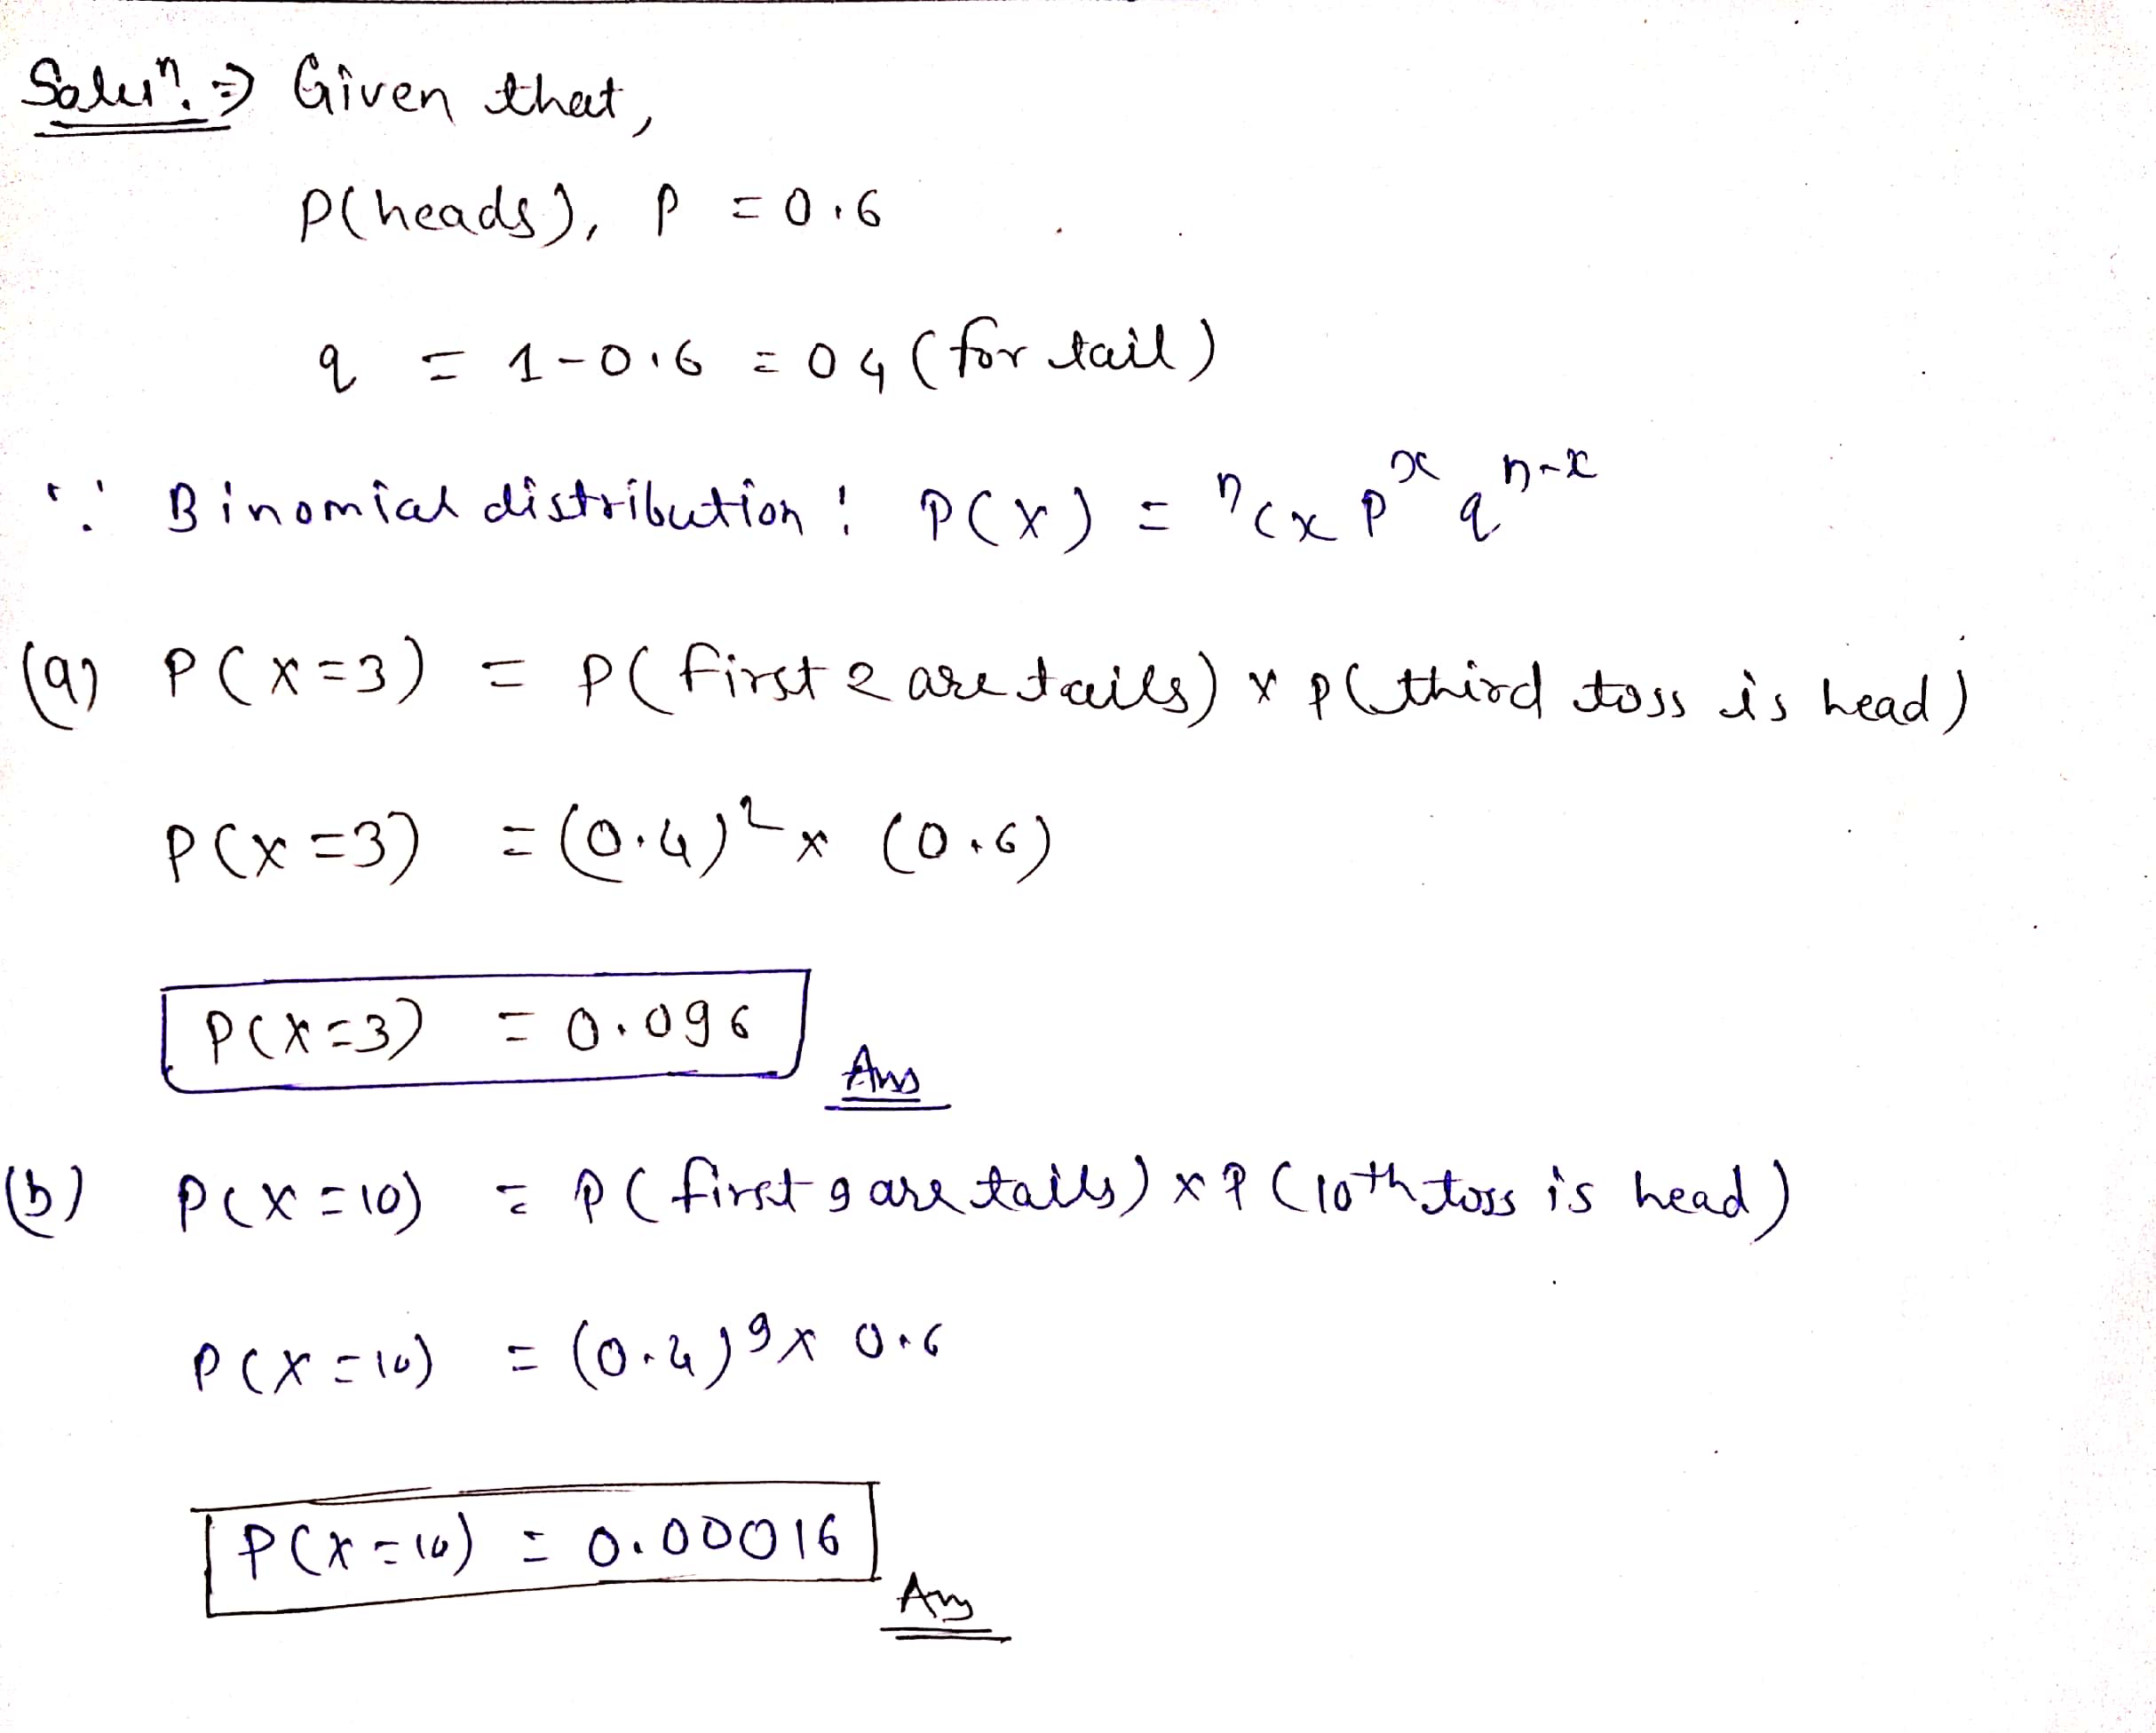 Soluⁿ. ⇒ Given that,
P(heads), P = 0.6
q = 1-0.6 = 04 (for tail)
∵ Binomial distribution : P(X) = ⁿCx pˣ qⁿ⁻ˣ
(a) P(X=3) = P(first 2 are tails) × P(third toss is head)
P(X=3) = (0.4)² × (0.6)
P(X=3) = 0.096
Ans
(b) P(X=10) = P(first 9 are tails) × P(10th toss is head)
P(X=10) = (0.4)⁹ × 0.6
P(X=10) = 0.00016
Ans